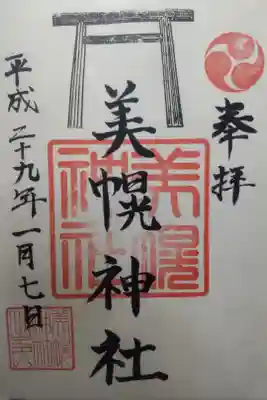 奉拝
美幌神社
美幌
神社
平成二十九年一月七日